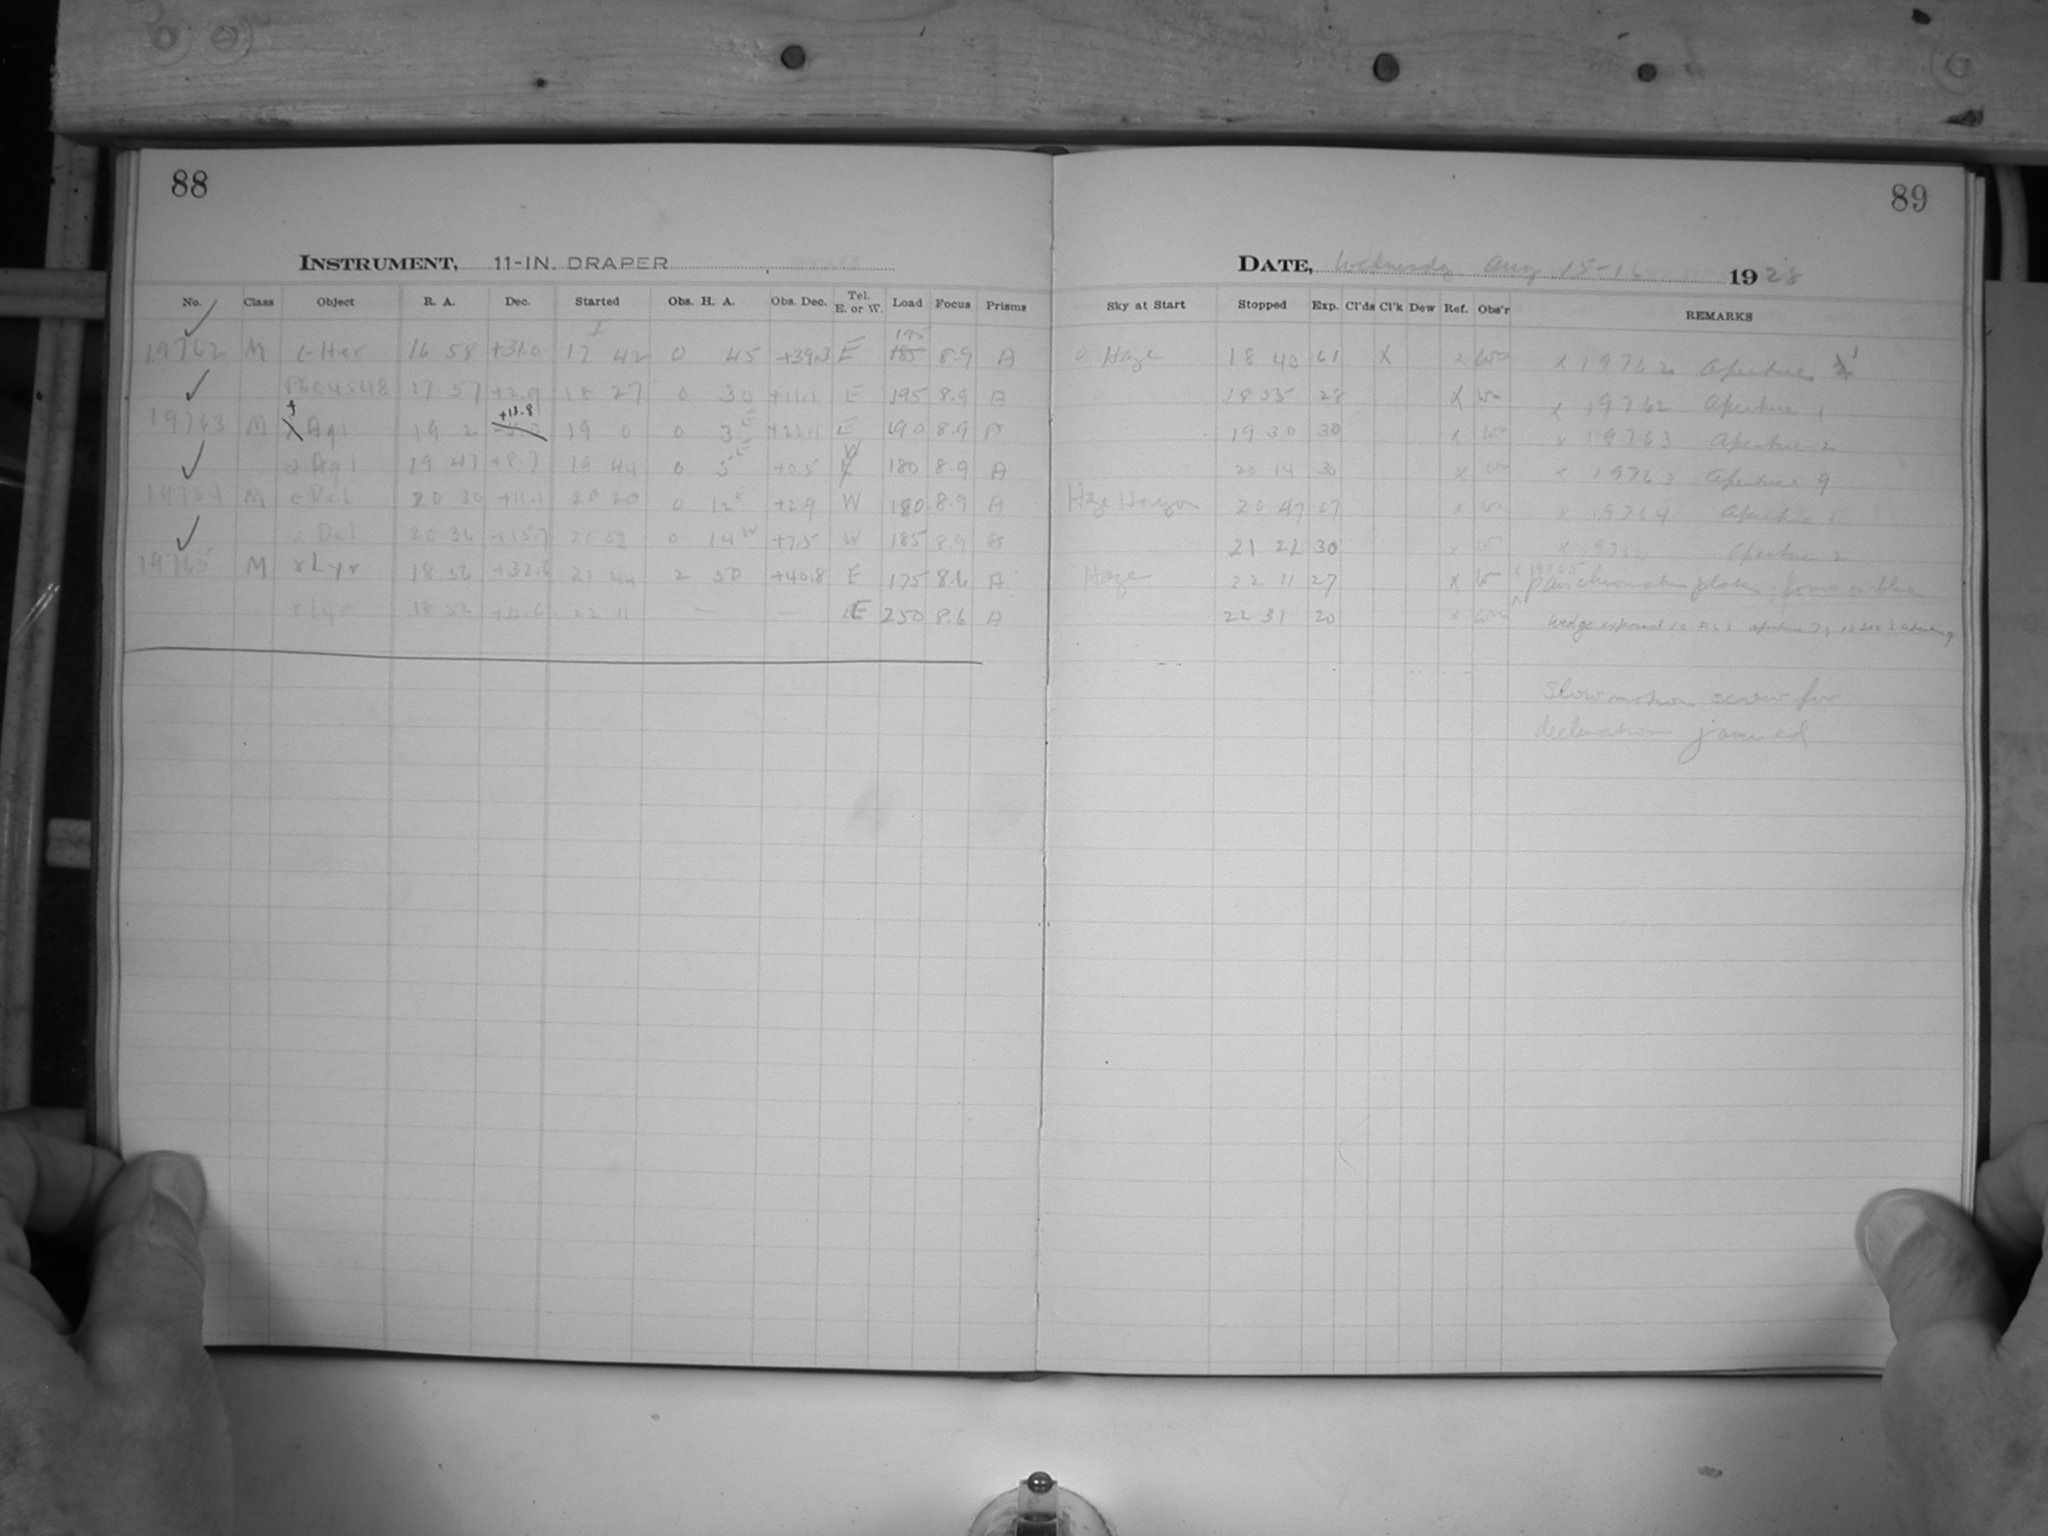 88
89
INSTRUMENT, 11-IN. DRAPER
DATE, Wednesday Aug 15-16 1928
No. Class Object R. A. Dec. Started Obs. H. A. Obs. Dec. Tel. E. or W. Load Focus Prisms Sky at Start Stopped Exp. Cl'ds Cl'k Dew Ref. Obs'r REMARKS
195
19762 M ε Her 16 58 +31.0 17 42 0 45 +39.3 E 185 8.9 A 0 Haze 18 40 61 X x x 19762 Aperture 1
4548 17 57 +2.9 18 27 0 30 +11.1 E 195 8.9 A 18 55 28 X x 19762 Aperture 1
+13.8
19763 M Aql 19 2 19 0 0 3 E +22.1 E 190 8.9 A 19 30 30 x x 19763 Aperture 2
α Aql 19 47 +8.7 19 44 0 5 E +0.5 W 180 8.9 A 20 14 30 x x 19763 Aperture 9
19764 M ε Del 20 30 +11.1 20 20 0 12 E +2.9 W 180 8.9 A Haze Horizon 20 47 27 x x 19764 Aperture 1
α Del 20 36 +15.7 20 52 0 14 W +7.5 W 185 8.9 A 21 22 30 x x Aperture 2
19765 M Lyr 18 56 +32.6 21 44 2 50 +40.8 E 175 8.6 A Haze 22 11 27 X Panchromatic plate; focus
Lyr 18 56 +32.6 22 11 — — E 250 8.6 A 22 31 20 x wedge exposed 10 aperture
Slow motion screw for
declination jammed